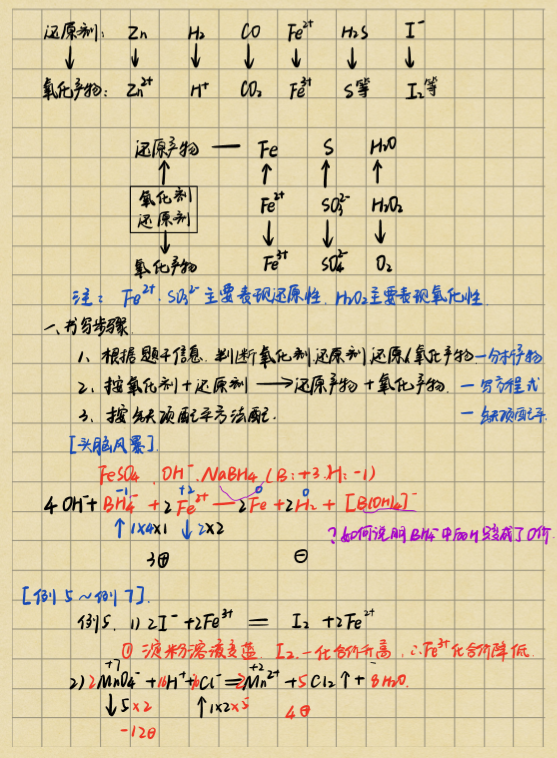 还原剂: Zn H₂ CO Fe²⁺ H₂S I⁻
↓ ↓ ↓ ↓ ↓ ↓ ↓
氧化产物: Zn²⁺ H⁺ CO₂ Fe³⁺ S等 I₂等
还原产物 — Fe S H₂O
↑ ↑ ↑ ↑
氧化剂
还原剂 Fe²⁺ SO₃²⁻ H₂O₂
↓ ↓ ↓ ↓
氧化产物 Fe³⁺ SO₄²⁻ O₂
注: Fe²⁺、SO₃²⁻主要表现还原性, H₂O₂主要表现氧化性
一、书写步骤
1、根据题干信息, 判断氧化剂,还原剂,还原/氧化产物 一分析产物
2、按氧化剂+还原剂 ⟶ 还原产物+氧化产物. 一写方程式
3、按缺项配平方法配. 一缺项配平
[头脑风暴].
FeSO₄、OH⁻、NaBH₄ (B:+3, H:-1)
-1 +2 0 0
4OH⁻+BH₄⁻+2Fe²⁺—2Fe+2H₂+[B(OH)₄]⁻
↑1×4×1 ↓2×2 ?如何说明BH₄⁻中的H变成了0价
3⊕ ⊖
[例5~例7].
例5、1) 2I⁻+2Fe³⁺ = I₂+2Fe²⁺
① 淀粉溶液变蓝, I₂、一化合价升高, ∴Fe³⁺化合价降低.
+7 +2
2) 2MnO₄⁻+16H⁺+10Cl⁻=2Mn²⁺+5Cl₂↑+8H₂O.
↓5×2 ↑1×2×5 4⊕
-12⊖